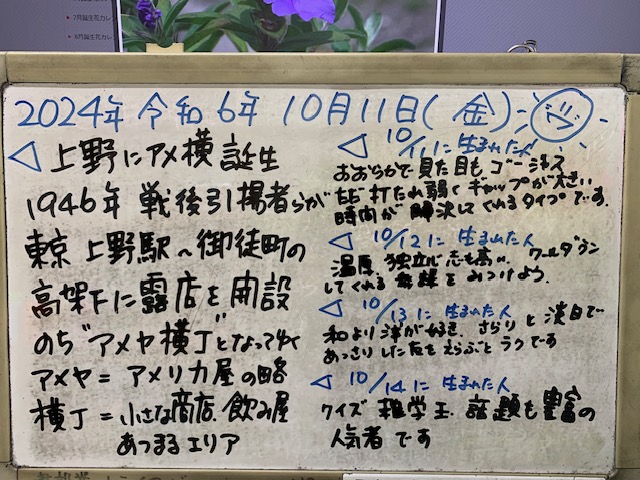 7月誕生花カレ
8月誕生花カレ
2024年 令和6年 10月11日(金)
◁ 上野にアメ横誕生
1946年 戦後引揚者らが
東京 上野駅〜御徒町の
高架下に露店を開設
のち"アメヤ横丁"となってゆく
アメヤ=アメリカ屋の略
横丁=小さな商店、飲み屋
あつまるエリア
◁ 10/11に生まれた人
おおらかで見た目もゴージャス
だが打たれ弱くギャップが大きい
時間が解決してくれるタイプです.
◁ 10/12に生まれた人
温厚、独立心志も高い、ワールダウン
してくれる をみつけよう.
◁ 10/13に生まれた人
和より洋が好き、さらりと淡白で
あっさりした布をえらぶとラクです
◁ 10/14に生まれた人
クイズ 雑学王、話題も豊富の
人気者です